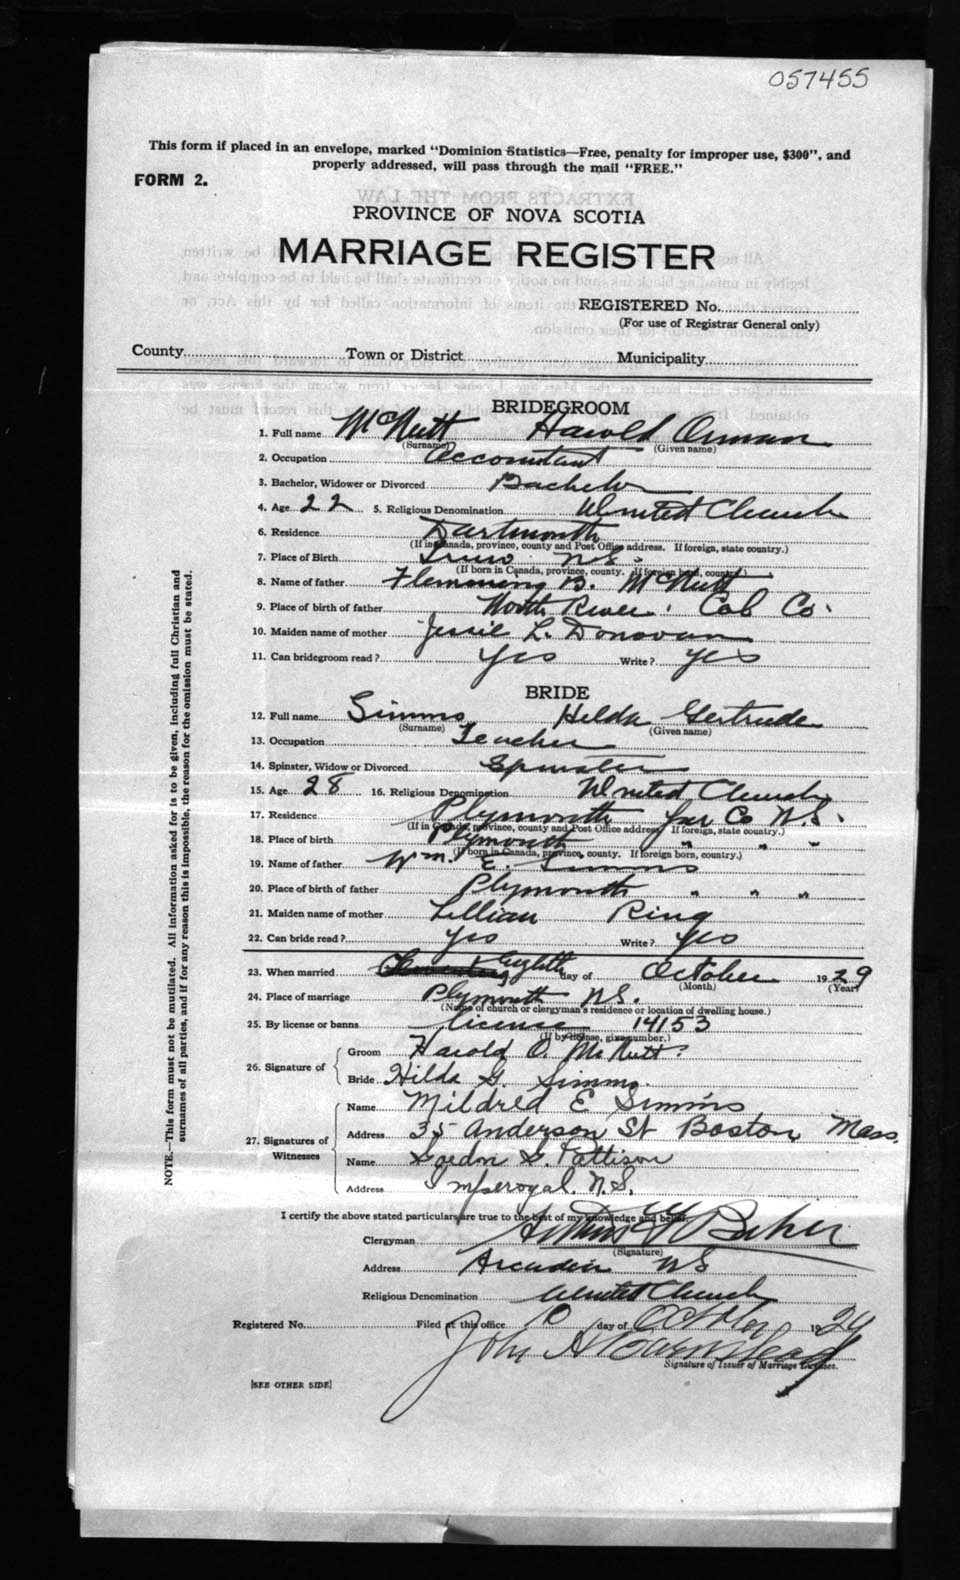 057455
This form if placed in an envelope, marked "Dominion Statistics—Free, penalty for improper use, $300", and
properly addressed, will pass through the mail "FREE."
FORM 2.
PROVINCE OF NOVA SCOTIA
MARRIAGE REGISTER
REGISTERED No.
(For use of Registrar General only)
County Town or District Municipality
BRIDEGROOM
1. Full name McNutt Harold Orman
(Surname) (Given name)
2. Occupation Accountant
3. Bachelor, Widower or Divorced Bachelor
4. Age 22 5. Religious Denomination United Church
6. Residence Dartmouth
(If in Canada, province, county and Post Office address. If foreign, state country.)
7. Place of Birth Truro N.S.
(If born in Canada, province, county. If foreign born, country.)
8. Name of father Flemming B. McNutt
9. Place of birth of father North River. Col Co.
10. Maiden name of mother Jessie L. Donovan
11. Can bridegroom read? Yes Write? Yes
BRIDE
12. Full name Simms Hilda Gertrude
(Surname) (Given name)
13. Occupation Teacher
14. Spinster, Widow or Divorced Spinster
15. Age 28 16. Religious Denomination United Church
17. Residence Plymouth Yar Co N.S.
(If in Canada, province, county and Post Office address. If foreign, state country.)
18. Place of birth Plymouth " " "
(If born in Canada, province, county. If foreign born, country.)
19. Name of father Wm. E. Simms
20. Place of birth of father Plymouth " " "
21. Maiden name of mother Lillian Ring
22. Can bride read? Yes Write? Yes
23. When married Eighth day of October 1929
(Month) (Year)
24. Place of marriage Plymouth N.S.
(Name of church or clergyman's residence or location of dwelling house.)
25. By license or banns License 14153
(If by license, give number.)
26. Signature of Groom Harold O. McNutt.
Bride Hilda G. Simms.
27. Signatures of Witnesses Name Mildred E Simms
Address 35 Anderson St Boston, Mass.
Name Pattison
Address Imperoyal. N.S.
I certify the above stated particulars are true to the best of my knowledge and belief.
Clergyman Baker
(Signature)
Address Arcadia N S
Religious Denomination United Church
Registered No. Filed at this office 10 day of October 1929
John H
Signature of Issuer of Marriage Licenses.
[SEE OTHER SIDE]
NOTE.—This form must not be mutilated. All information asked for is to be given, including full Christian and
surnames of all parties, and if for any reason this is impossible, the reason for the omission must be stated.